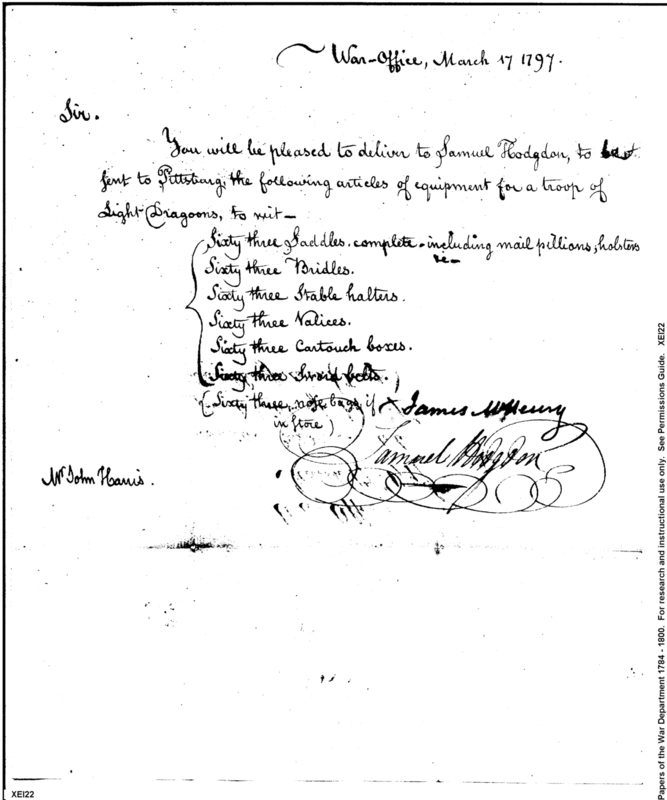 War-Office, March 17 1797.
Sir.
You will be pleased to deliver to Samuel Hodgdon, to be
sent to Pittsburg, the following articles of equipment for a troop of
Light Dragoons, to wit—
Sixty three Saddles. complete. including mail pillions, holsters
&c—
Sixty three Bridles.
Sixty three Stable halters.
Sixty three Valices.
Sixty three Cartouch boxes.
Sixty three Sword belts.
(Sixty three, nose bags if
in store)
James McHenry
Samuel Hodgdon
Mr John Harris.
XEI22
Papers of the War Department 1784 - 1800. For research and instructional use only. See Permissions Guide. XEI22